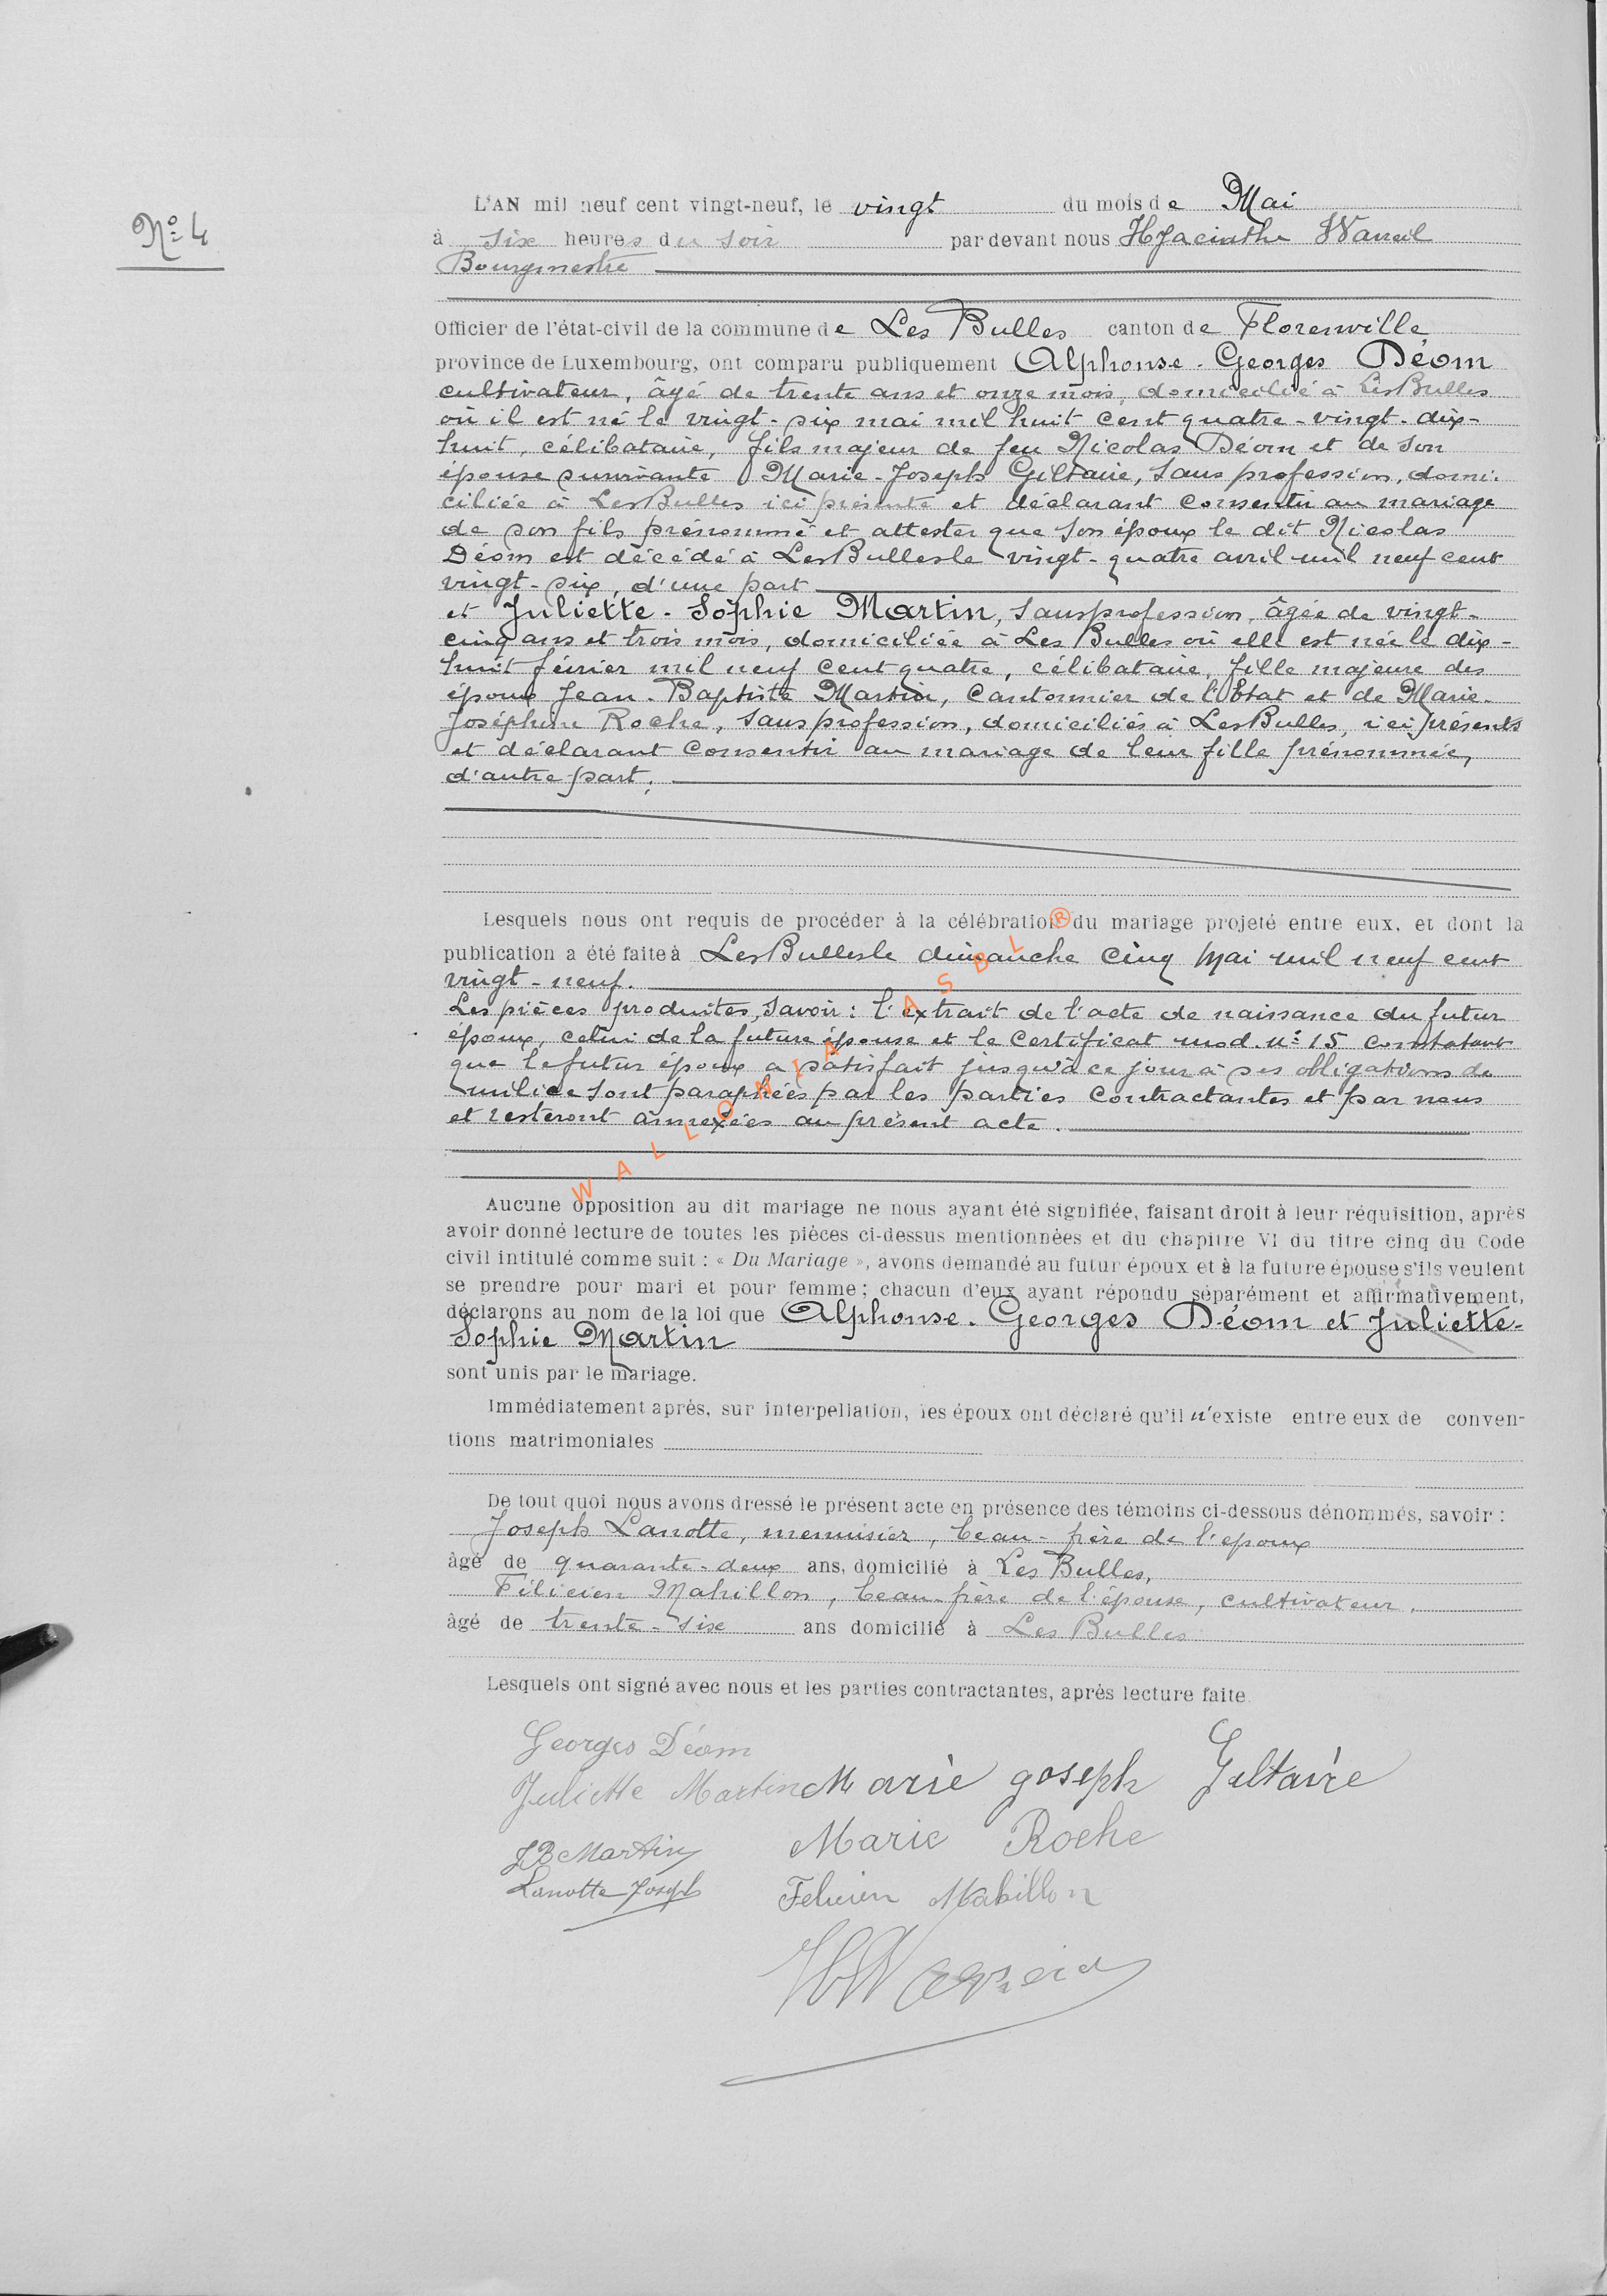 N° 4
L'AN mil neuf cent vingt-neuf, le vingt du mois de Mai
à six heures du soir par devant nous Hyacinthe
Bourgmestre
Officier de l'état-civil de la commune de Les Bulles canton de Florenville
province de Luxembourg, ont comparu publiquement Alphonse-Georges Déom
cultivateur, âgé de trente ans et onze mois, domicilié à Les Bulles
où il est né le vingt-six mai mil huit cent quatre-vingt-dix-
huit, célibataire, fils majeur de feu Nicolas Déom et de son
épouse survivante Marie-Joseph Giltaire, sans profession, domi-
ciliée à Les Bulles ici présente et déclarant consentir au mariage
de son fils prénommé et attester que son époux le dit Nicolas
Déom est décédé à Les Bulles le vingt-quatre avril mil neuf cent
vingt-six, d'une part
et Juliette-Sophie Martin, sans profession, âgée de vingt-
cinq ans et trois mois, domiciliée à Les Bulles où elle est née le dix-
huit février mil neuf cent quatre, célibataire, fille majeure des
époux Jean-Baptiste Martin, Cantonnier de l'Etat et de Marie-
Joséphine Roche, sans profession, domiciliés à Les Bulles, ici présents
et déclarant consentir au mariage de leur fille prénommée,
d'autre part;
Lesquels nous ont requis de procéder à la célébration du mariage projeté entre eux, et dont la
publication a été faite à Les Bulles le dimanche cinq mai mil neuf cent
vingt-neuf.
Les pièces produites, savoir: l'extrait de l'acte de naissance du futur
époux, celui de la future épouse et le certificat mod. n° 15 constatant
que le futur époux a satisfait jusqu'à ce jour à ses obligations de
milice sont paraphées par les parties contractantes et par nous
et resteront annexées au présent acte.
WALLONIA ASBL ®
Aucune opposition au dit mariage ne nous ayant été signifiée, faisant droit à leur réquisition, après
avoir donné lecture de toutes les pièces ci-dessus mentionnées et du chapitre VI du titre cinq du Code
civil intitulé comme suit : « Du Mariage », avons demandé au futur époux et à la future épouse s'ils veulent
se prendre pour mari et pour femme ; chacun d'eux ayant répondu séparément et affirmativement,
déclarons au nom de la loi que Alphonse-Georges Déom et Juliette-
Sophie Martin
sont unis par le mariage.
Immédiatement après, sur interpellation, les époux ont déclaré qu'il n'existe entre eux de conven-
tions matrimoniales
De tout quoi nous avons dressé le présent acte en présence des témoins ci-dessous dénommés, savoir :
Joseph Lanotte, menuisier, beau-frère de l'époux
âgé de quarante-deux ans, domicilié à Les Bulles,
Félicien Mabillon, beau-frère de l'épouse, cultivateur,
âgé de trente-six ans domicilié à Les Bulles
Lesquels ont signé avec nous et les parties contractantes, après lecture faite.
Georges Déom
Juliette Martin Marie joseph Giltaire
JB Martin Marie Roche
Lanotte Joseph Felicien Mabillon